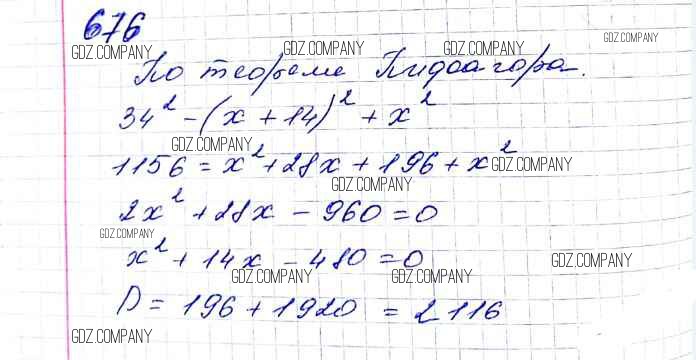 676
GDZ.COMPANY
GDZ.COMPANY GDZ.COMPANY GDZ.COMPANY
По теореме Пифагора.
34² - (x + 14)² + x²
GDZ.COMPANY
1156 = x² + 28x + 196 + x²
GDZ.COMPANY
GDZ.COMPANY
2x² + 28x - 960 = 0
GDZ.COMPANY
x² + 14x - 480 = 0
GDZ.COMPANY
GDZ.COMPANY GDZ.COMPANY GDZ.COMPANY
D = 196 + 1920 = 2116
GDZ.COMPANY